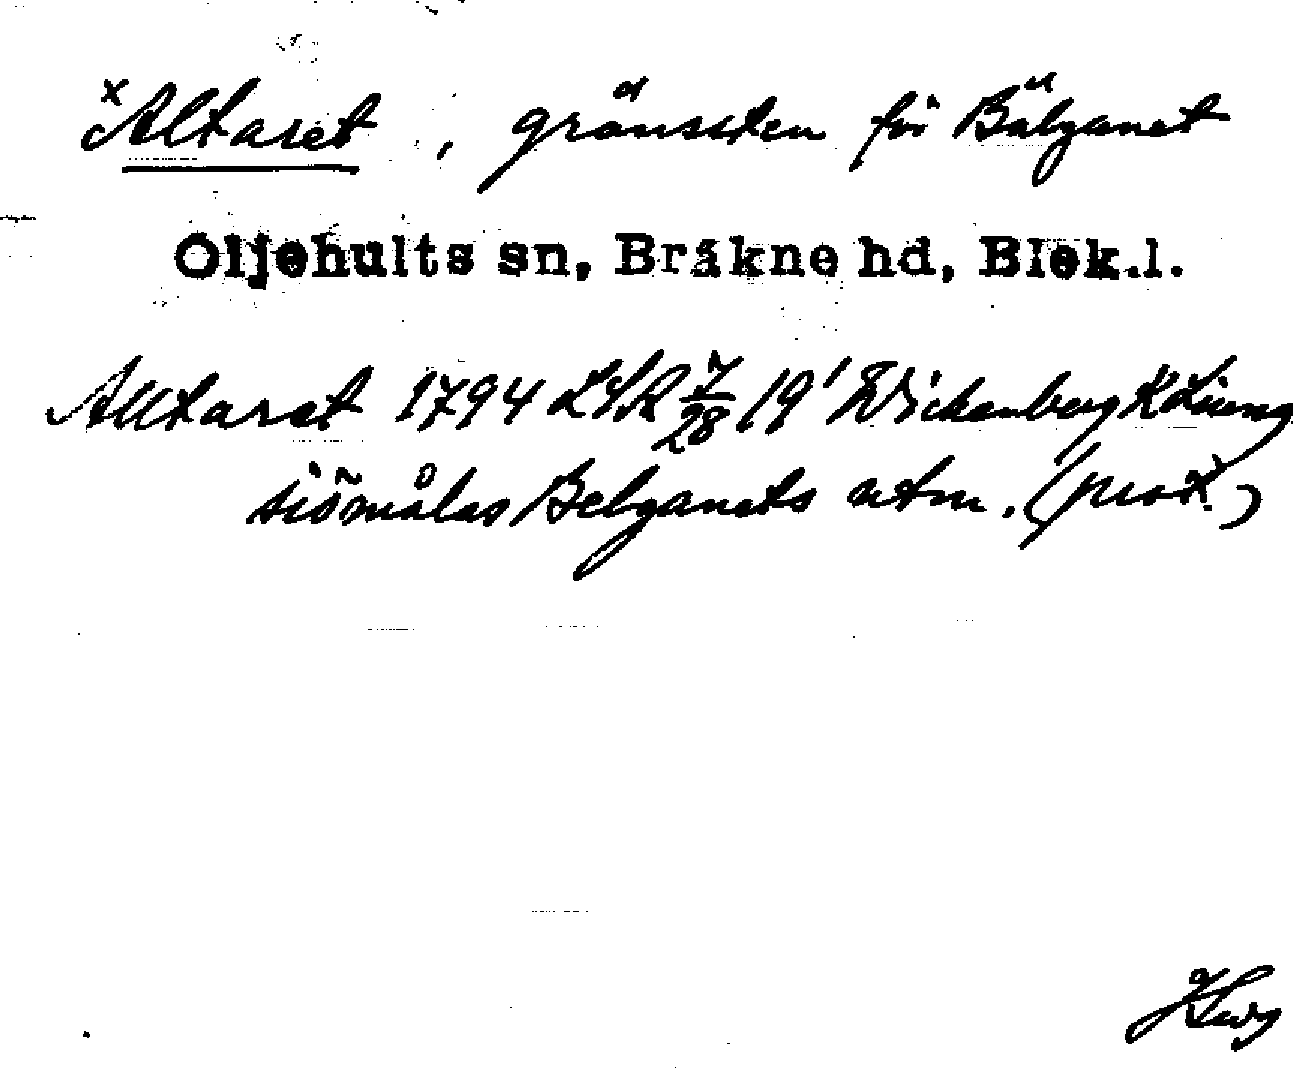 ˣAltaret, gränssten för Bälganet
Oljehults sn, Bräkne hd, Blek.l.
Alltaret 1794 LSK 7/28 19' Wickenberg K Liung
siömålas Belganets utm. (prot.)